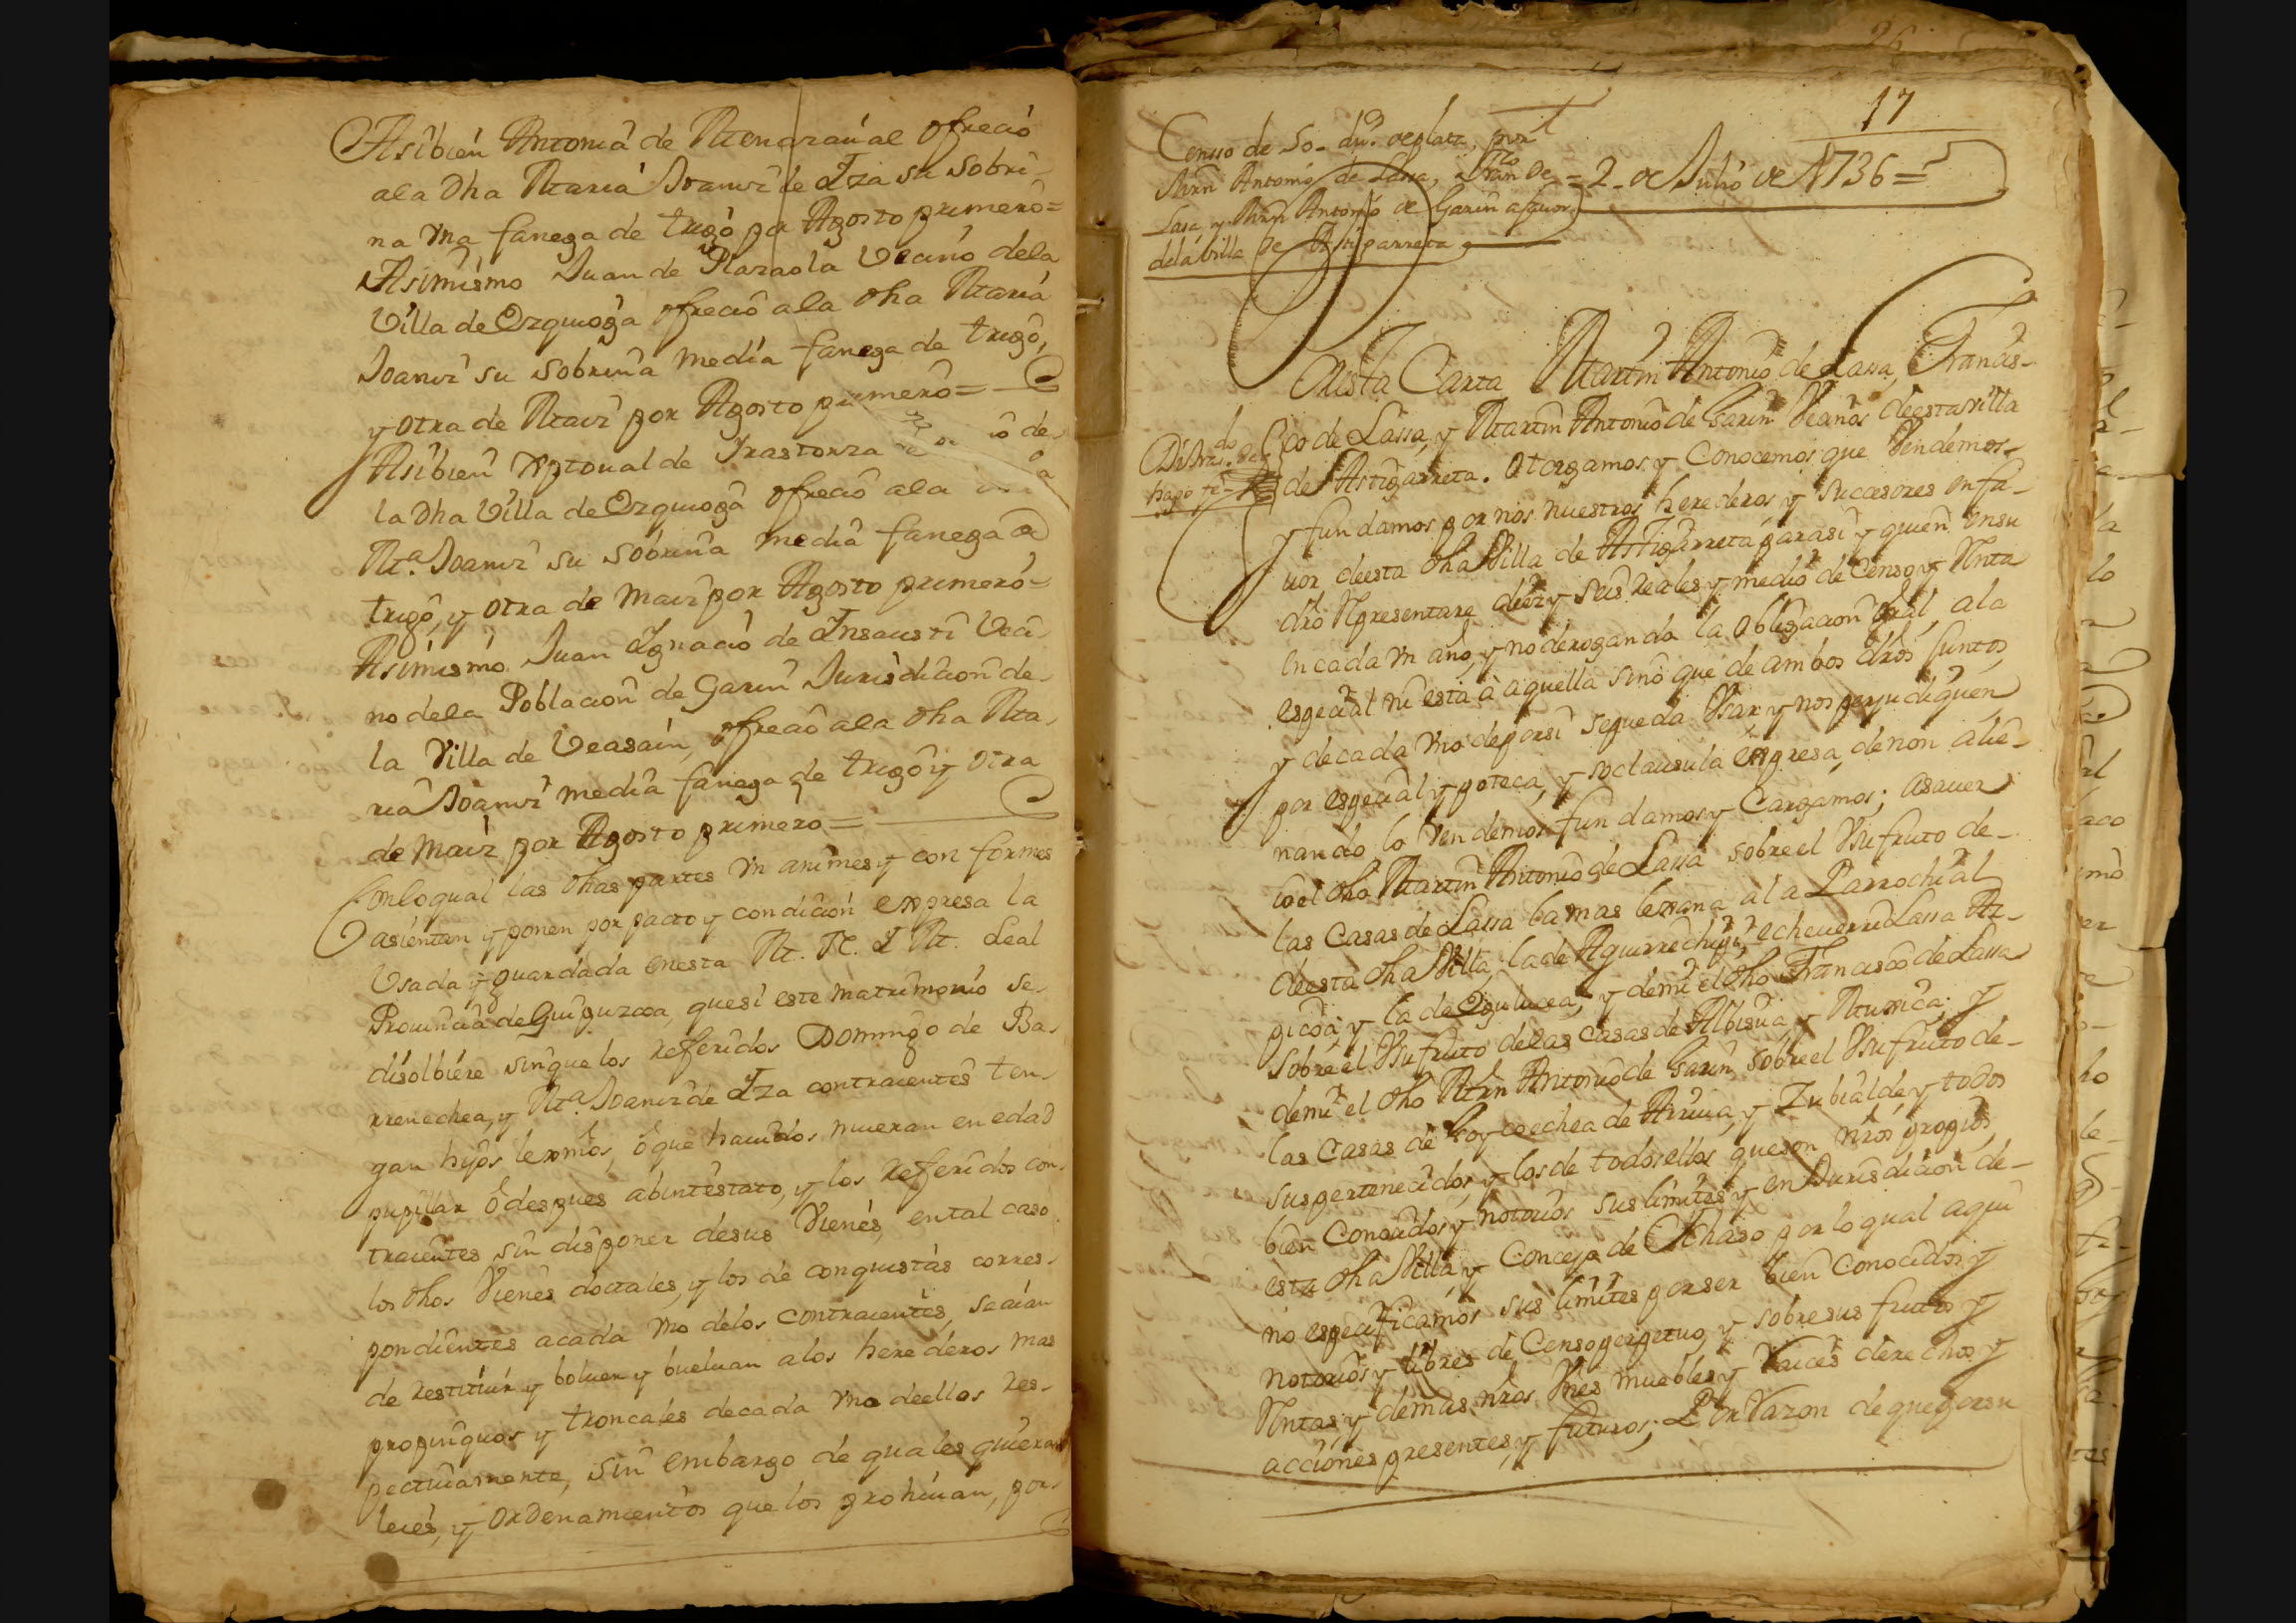 Asibien Antonia de Mendaraual ofrecio
ala dha Maria Joaniz de Iza su sobri-
na vna fanega de trigo por Agosto primero=
Asimismo Juan de Plazaola Vecino dela
Villa de Ezquioga ofrecio ala dha Maria
Joaniz su sobrina media fanega de trigo,
y otra de Maiz por Agosto primero=
Asibien Xptoual de Irastorza de
la dha Villa de Ezquioga ofrecio ala
Mª. Joaniz su sobrina media fanega de
trigo, y otra de maiz por Agosto primero-
Asimismo Juan Ignacio de Insausti Veci-
no dela Poblacion de Garin Jurisdicion de-
la Villa de Veasain, ofrecio ala dha Ma-
ria Joaniz media fanega de trigo y otra
de Maiz por Agosto primero=
Conloqual las dhas partes vn animes y con formes
asientan y ponen por pacto y condicion expresa la
Vsada y guardada enesta M. N. I M. Leal
Prouincia de Guipuzcoa, quesi este matrimonio se-
disolbiere sinque los referidos Domingo de Ba-
rrenechea, y Mª. Joaniz de Iza contraientes ten-
gan hijos lexmos, ò que hauidos mueran en edad
pupilar ò despues abintestato, y los referidos con-
traientes sin disponer desus Vienes, ental caso
los dhos Vienes dotales, y los de conquistas corres-
pondientes acada vno delos contraientes, seaian
de restituir y boluer y bueluan alos herederos mas
propinquos y troncales decada vno deellos res-
pectiuamente, sin embargo de quales quieras
leies, y ordenamientos que los prohiuan, por-
17
Censso de 50- du.s deplata, por
Mrn Antonio de Lassa, Fran.co de
Lasa, y Mrn Antonio de Garin afauor
dela villa de Astigarreta
=2- de Julio de 1736=
Enesta Carta Martin Antonio de Lassa, Francis-
co de Lassa, y Martin Antonio de Garin Vecinos deesta villa
de Astigarreta. Otorgamos y Conocemos que Vendemos-
y fundamos por nos nuestros herederos y Succesores enfa-
uor deesta dha Villa de Astigarreta parasi y quien ensu
dro Representare diez y seis reales y medio de Censo y Renta
en cada vn año, y no derogando la obligacion gral, ala
especial ni esta à aquella sino que de ambos dros juntos,
y decada vno deporsi sepueda Vsar y nos perjudiquen
por especial ypoteca, y so clausula expresa, denon alie-
nando lo Vendemos fundamos y Cargamos; asauer
io el dho Martin Antonio de Lassa sobreel Vsufruto de-
las Casas de Lassa la mas lexana ala Parrochial
deesta dha Villa, la de Aguirrechipi, echeuerri Lassa Az-
picoa; y la de Egulucea; y demi el dho Francisco de Lassa
sobre el Vsufruto delas Casas de Albisua y Munica; y
demi el dho Mrn Antonio de Garin sobreel Vsufruto de-
las Casas de Goycoechea de Arriua, y Zubialde y todos
sus pertenecidos, y los de todos ellos queson nros propios,
bien Conocidos, y notorios sus limites y en Jurisdicion de-
esta dha Villa, y Concejo de Ichaso por lo qual aqui
no especificamos sus limites por ser bien Conocidos y
notorios y libres de Censo perpetuo, y sobre sus frutos y
Rentas y demas nros Vnes muebles y Raices derechos y
acciones presentes, y futuros; Por Razon de que por su